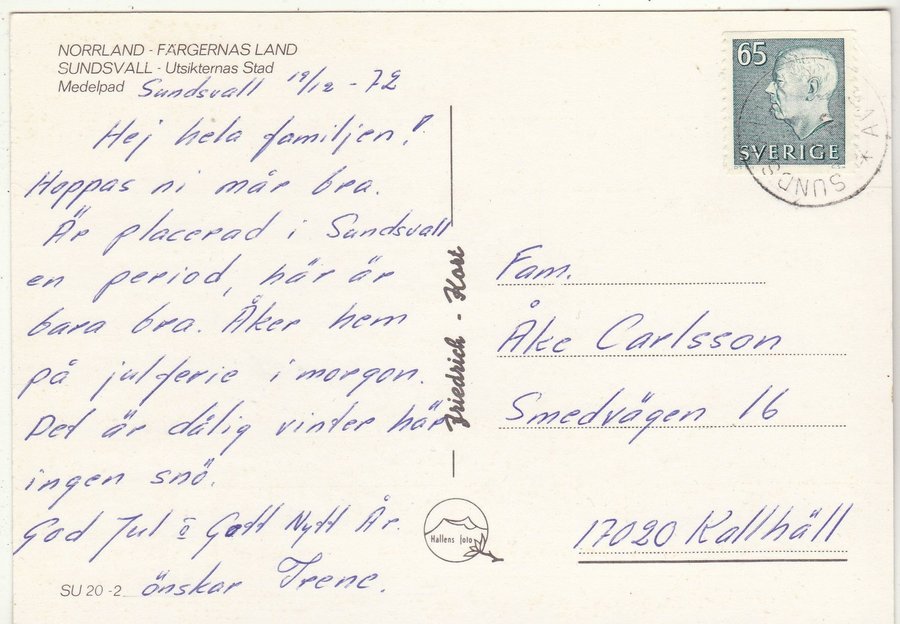 NORRLAND - FÄRGERNAS LAND
SUNDSVALL - Utsikternas Stad
Medelpad
Sundsvall 19/12 - 72
Hej hela familjen!
Hoppas ni mår bra.
Är placerad i Sundsvall
en period, här är
bara bra. Åker hem
på julferie i morgon.
Det är dålig vinter här
ingen snö.
God Jul o Gott Nytt År.
önskar Irene.
SU 20 -2
Friedrich - Kort
Hallens foto
65
SVERIGE
SUNDS
* AV
Fam.
Åke Carlsson
Smedvägen 16
17020 Kallhäll